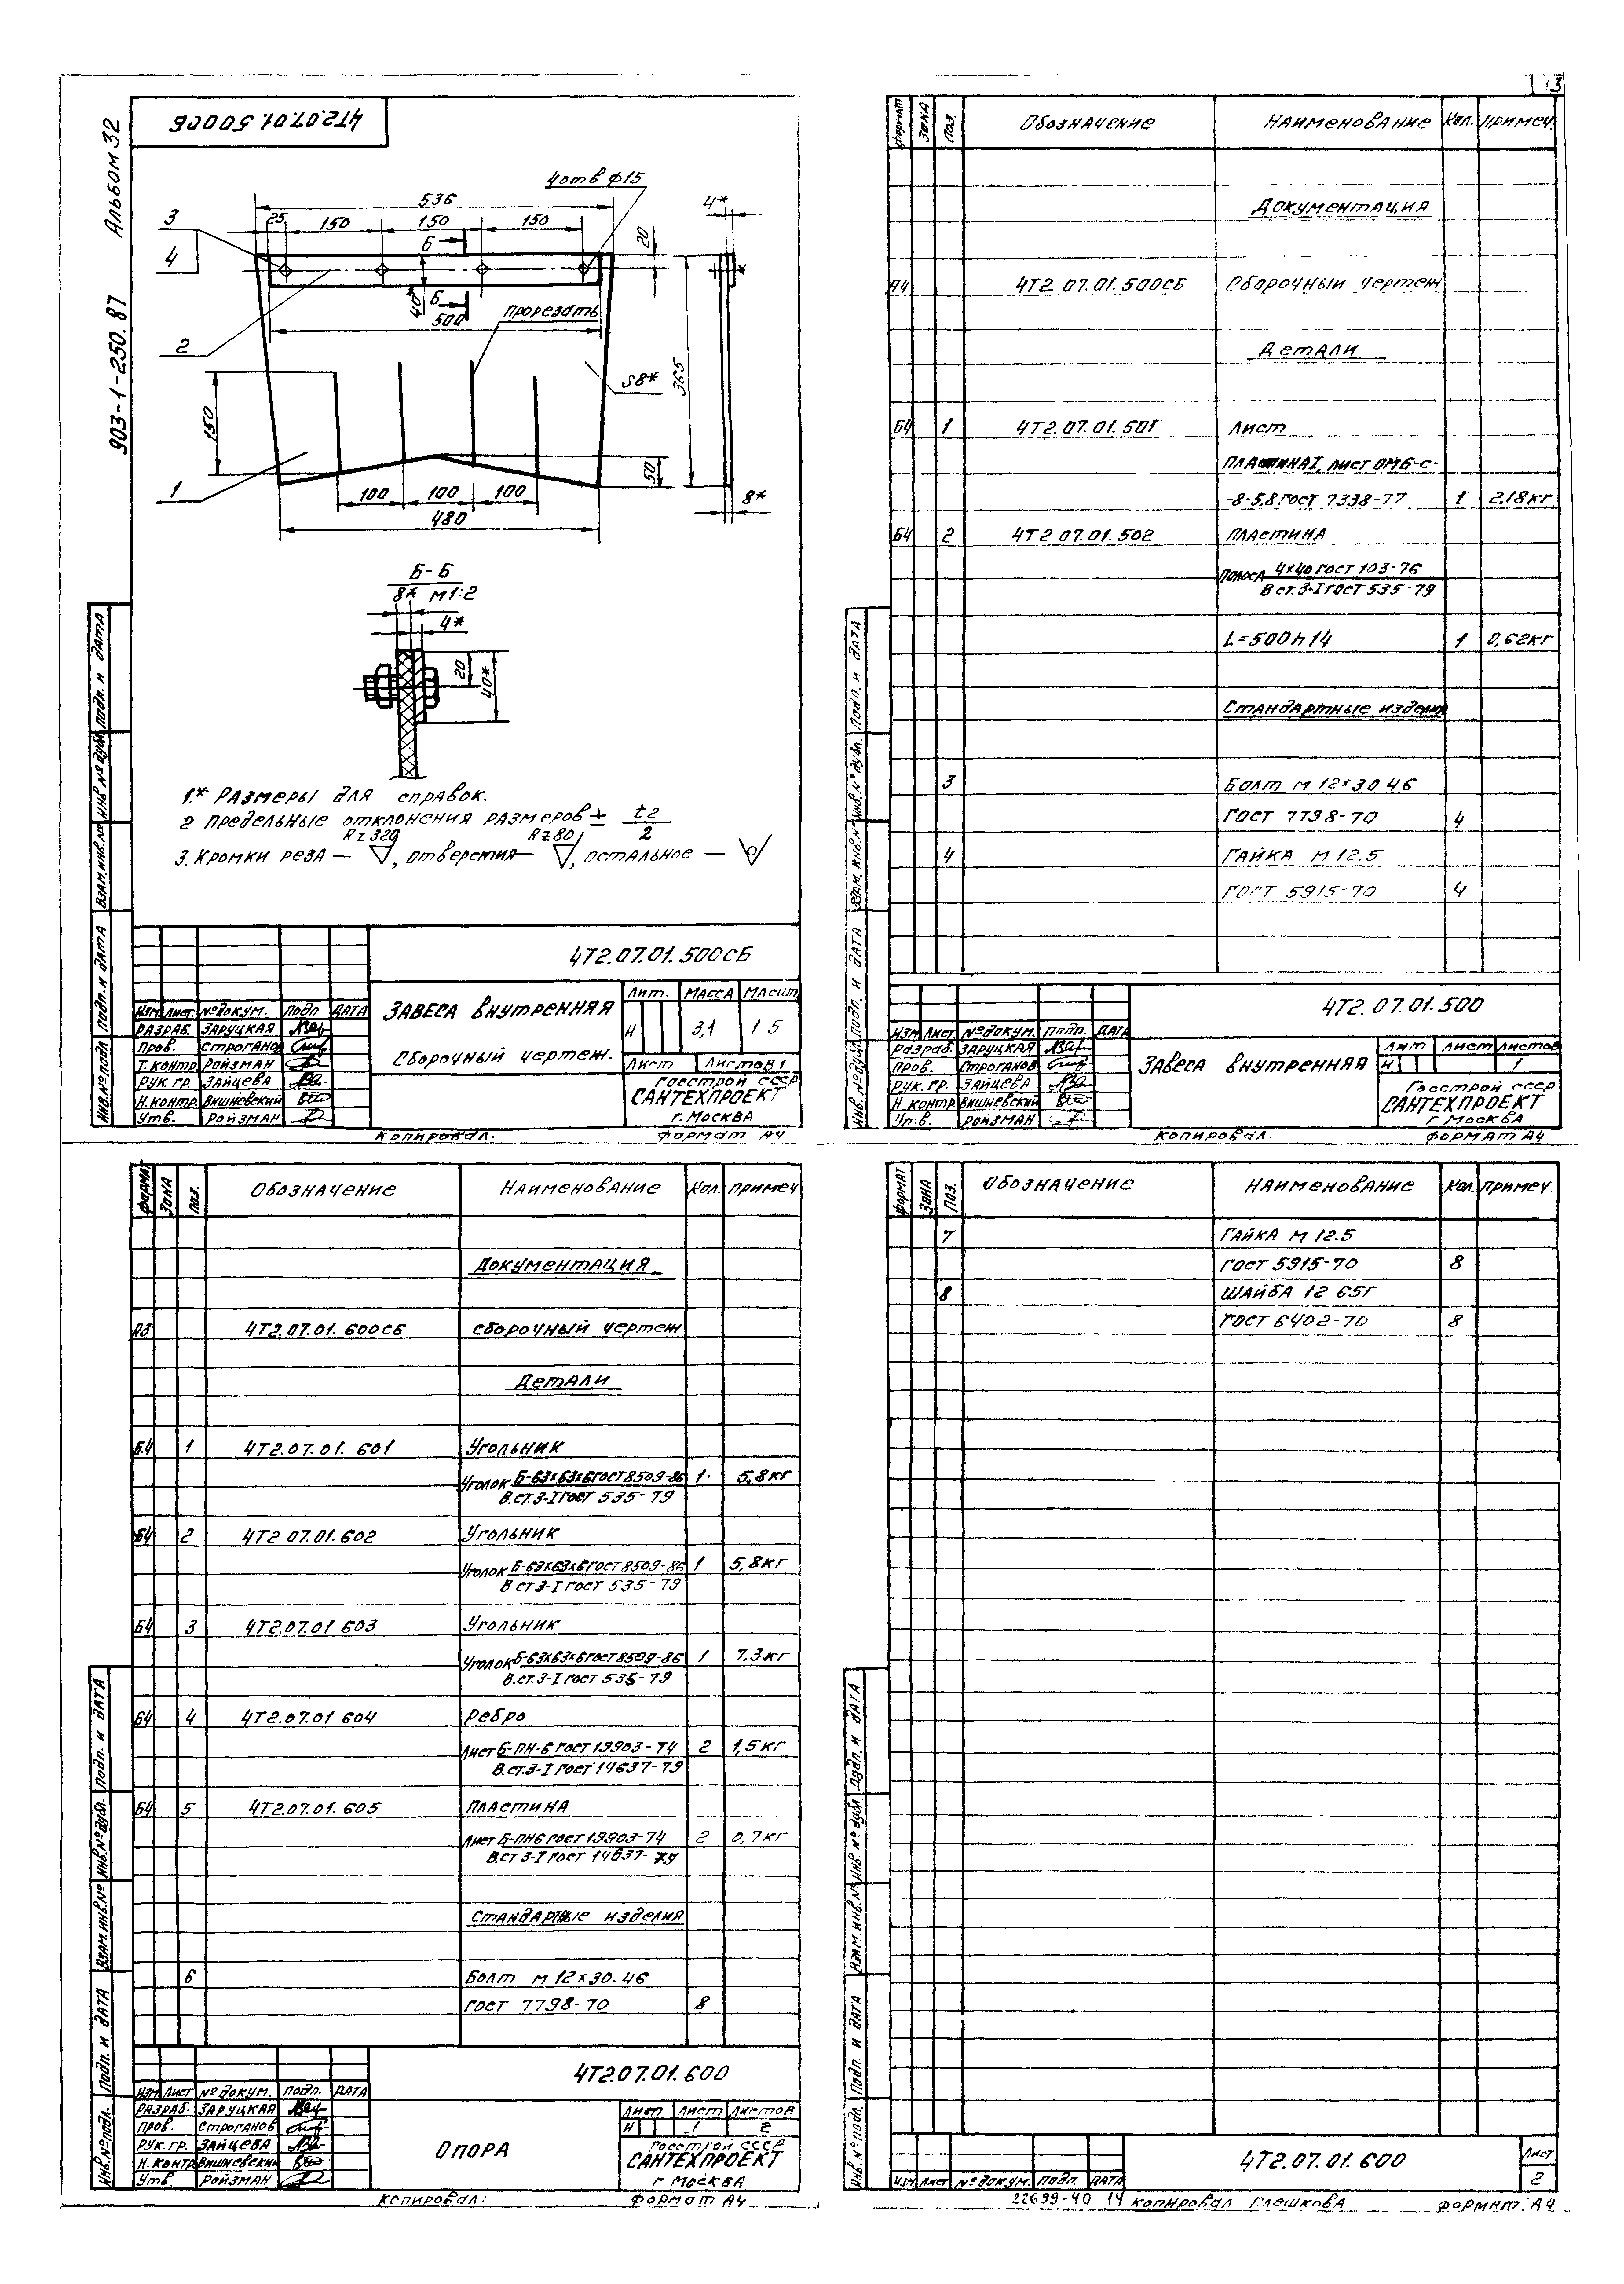 4Т2.07.01.500СБ
Альбом 32
903-1-250.87
13
4отв ф15
536
25
150
150
150
4*
20
3
4
Б
40*
Б
500
Прорезать
2
S8*
365
150
1
50
100
100
100
480
8*
Б-Б
М1:2
8*
4*
20
40*
1.* Размеры для справок.
2 Предельные отклонения размеров ± t2/2
3. Кромки реза — Rz320, отверстия — Rz80, остальное —
4Т2.07.01.500СБ
Завеса внутренняя
Сборочный чертеж.
Лит. Масса Масшт
Н 3,1 1 5
Лист Листов 1
Госстрой СССР
САНТЕХПРОЕКТ
г. Москва
Изм Лист №докум. Подп Дата
Разраб. Заруцкая
Пров. Строганов
Т. контр. Ройзман
Рук. гр. Зайцева
Н. контр. Вишневский
Утв. Ройзман
Копировал. Формат А4
Инв.№ подл Подп. и дата Взам.инв.№ Инв №дубл. Подп. и дата
Формат Зона Поз. Обозначение Наименование Кол. Примеч.
Документация
А4 4Т2.07.01.500СБ Сборочный чертеж
Детали
Б4 1 4Т2.07.01.501 Лист
Пластина I, лист ОМБ-С-
-8-5,8 ГОСТ 7338-77 1 2,18кг
Б4 2 4Т2 07.01.502 Пластина
Полоса 4×40 ГОСТ 103-76
В ст.3-I ГОСТ 535-79
L=500 h14 1 0,62кг
Стандартные изделия
3 Болт М 12×30 46
ГОСТ 7798-70 4
4 Гайка М 12.5
ГОСТ 5915-70 4
4Т2.07.01.500
Изм Лист №докум. Подп. Дата
Разраб. Заруцкая
Пров. Строганов
Рук. гр. Зайцева
Н контр. Вишневский
Утв. Ройзман
Завеса внутренняя
Лит Лист Листов
Н 1
Госстрой СССР
САНТЕХПРОЕКТ
г Москва
Копировал. Формат А4
Инв.№дубл. Подп. и дата Взам. инв.№ Инв.№дубл. Подп. и дата
Формат Зона Поз. Обозначение Наименование Кол. Примеч
Документация
А3 4Т2.07.01.600СБ Сборочный чертеж
Детали
Б4 1 4Т2.07.01.601 Угольник
Уголок Б-63×63×6 ГОСТ 8509-86 1 5,8кг
В.ст.3-I ГОСТ 535-79
Б4 2 4Т2 07.01.602 Угольник
Уголок Б-63×63×6 ГОСТ 8509-86 1 5,8кг
В ст 3-I ГОСТ 535-79
Б4 3 4Т2.07.01 603 Угольник
Уголок Б-63×63×6 ГОСТ 8509-86 1 7,3кг
В.ст.3-I ГОСТ 535-79
Б4 4 4Т2.07.01 604 Ребро
Лист Б-ПН-6 ГОСТ 19903-74 2 1,5кг
В.ст.3-I ГОСТ 14637-79
Б4 5 4Т2.07.01.605 Пластина
Лист Б-ПН6 ГОСТ 19903-74 2 0,7кг
В.ст 3-I ГОСТ 14637-79
Стандартные изделия
6 Болт М 12×30.46
ГОСТ 7798-70 8
4Т2.07.01.600
Изм Лист №докум. Подп. Дата
Разраб. Заруцкая
Пров. Строганов
Рук. гр. Зайцева
Н. контр Вишневский
Утв. Ройзман
Опора
Лит Лист Листов
Н 1 2
Госстрой СССР
САНТЕХПРОЕКТ
г Москва
Копировал: Формат А4
Инв.№подл. Подп. и дата Взам.инв.№ Инв.№дубл. Подп. и дата
Формат Зона Поз. Обозначение Наименование Кол. Примеч.
7 Гайка М 12.5
ГОСТ 5915-70 8
8 Шайба 12 65Г
ГОСТ 6402-70 8
4Т2.07.01.600
Лист
2
Изм Лист №докум. Подп Дата
22699-40 14 Копировал Глешкова Формат: А4
Инв.№подл. Подп. и дата Взам.инв.№ Инв №дубл. Подп. и дата